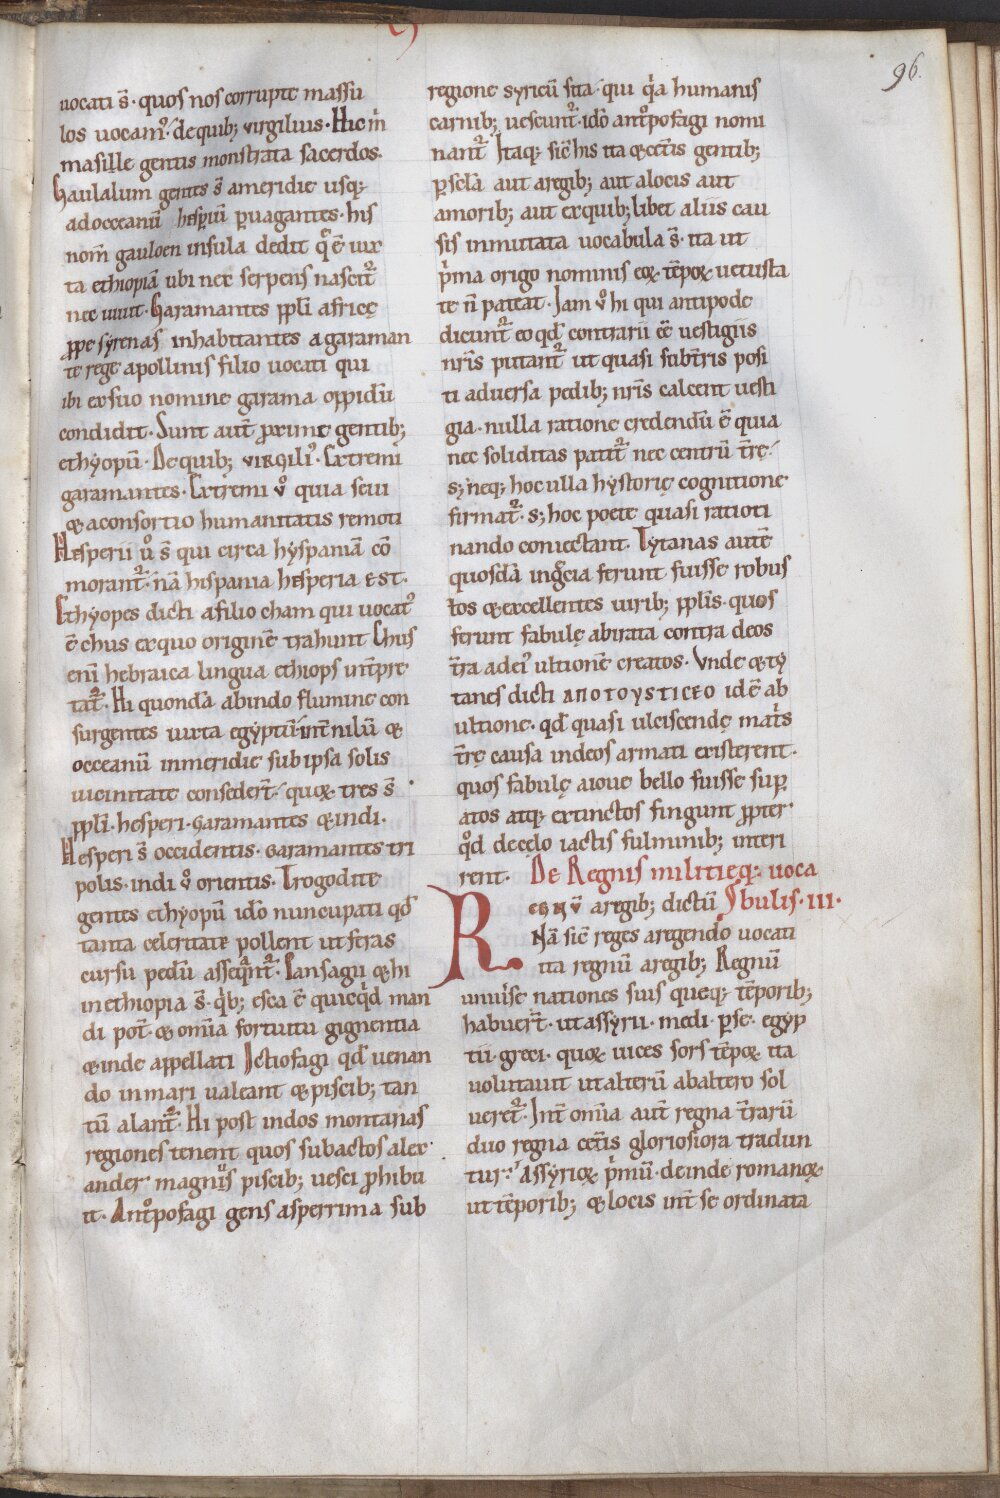 96.
uocati s̄· quos nos corrupte massu
los uocam᷒· de quib; virgilius· Hic m̄
masille gentis monstrata sacerdos·
Gaulalum gentes s̄ ameridie usq;
ad occeanū hesperiū puagantes· his
nom̄ gauloen insula dedit q̄ ē iux
ta ethiopiā ubi nec serpens nascit᷒
nec uiuit· Garamantes ppl̄i africę
ꝓpe syrenas inhabitantes a garaman
te rege apollinis filio uocati qui
ibi ex suo nomine garama oppidū
condidit· Sunt aut̄ ꝓxime gentib;
ethyopū· De quib; VIRGILI᷒· Extremi
garamantes· Extremi ů quia seui
& aconsortio humanitatis remoti
Hesperii ů s̄ qui circa hyspaniā cō
morant᷒· nā hispania hesperia EST·
Ethyopes dicti afilio cham qui uocat᷒
ē chus ex quo originē trahunt Chus
eni hebraica lingua ethiops int̄pre
tat᷒· Hi quondā abindo flumine con
surgentes iuxta egyptū· int̄ nilū &
occeanū inmeridie sub ipsa solis
uicinitate consedert̄· quoꝝ tres s̄
ppl̄i· hesperi· Garamantes & indi·
Hesperi s̄ occidentis· Garamantes tri
polis· indi ů orientis· Trogodite
gentes ethyopū ido nuncupati qđ
tanta celeritate pollent ut feras
cursu pedū asseqnt᷒· Pansagii & hi
in ethiopia s̄· qib; esca ē quicqid man
di pot̄· & omīa fortuitu gignentia
& inde appellati Ictiofagi qđ uenan
do in mari ualeant & piscib; tan
tū alant᷒· Hi post indos montanas
regiones tenent quos subactos alex
ander magnus piscib; uesci ꝓhibu
it· Antͦpofagi gens asperrima sub
regione syricū sita· qui qa humanis
carnib; uescunt᷒· ido antͦpofagi nomi
nant᷒ Itaq; sic̄ his ita & cet̄is gentib;
ꝑ sc̄la aut aregib; aut alocis aut
amorib; aut ex quib; libet aliis cau
sis inmutata uocabula s̄· ita ut
pͥma origo nominis eoꝝ tēpoꝝ uetusta
te n̄ pateat· Iam ů hi qui antipode
dicunt᷒ eo qđ contrarii eē uestigiis
nr̄is putant᷒ ut quasi sub t̄ris posi
ti aduersa pedib; nr̄is calcent uesti
gia· nulla ratione credendū ē quia
nec soliditas patit᷒ nec centrū t̄rę·
s; neq; hoc ulla hystorię cognitione
firmat᷒· s; hoc poete quasi ratioti
nando coniectant· Tytanas autē
quosdā in gͬcia ferunt fuisse robus
tos & excellentes uirib; ppl̄is· quos
ferunt fabulę abirata contra deos
t̄ra adei᷒ ultionē creatos· Vnde & ty
tanes dicti ΑΠΟΤΟΥSΤΙCΕΟ id ē ab
ultione· qđ quasi ulciscendę matͥs
t̄rę causa indeos armati existerent·
quos fabulę aioue bello fuisse sup
atos atq; extinctos fingunt ꝓpter
qđ decęlo iactis fulminib; interi
rent· De Regnis militięq; uoca
REGNV̄ aregib; dictū ybulis· III·
Nā sic̄ reges aregendo uocati
ita regnū aregib; Regnū
uniūse nationes suis queq; tēporib;
habuert̄· ut assyrii· medi· ꝑse· egyp
tii· greci· quoꝝ uices sors tēpoꝝ ita
uolutauit ut alterū abaltero sol
ueret᷒· Int̄ omīa aut̄ regna t̄rarū
duo regna cet̄is gloriosiora tradun
tur· Assyrioꝝ pͥmū· deinde romanoꝝ
ut tēporib; & locis int̄ se ordinata